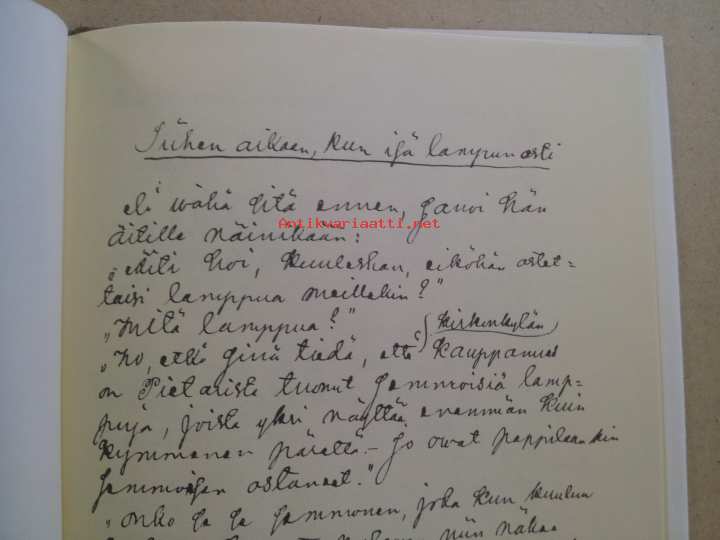 Siihen aikaan, kun isä lampun osti
eli wähä sitä ennen, sanoi hän
Antikvariaatti.net
äitille näinikään:
„Äiti hoi, kuuleshan, eiköhän ostet=
taisi lamppua meillekin?”
„Mitä lamppua?”
kirkonkylän
„No, etkö sinä tiedä, että kauppamies
on Pietarista tuonut semmoisiä lamp=
puja, joista yksi näyttää enemmän kuin
kymmenen pärettä. – Jo owat pappilaankin
semmoisen ostaneet.”
„Onko se se semmonen, joka kun kuuluu
niin näkee